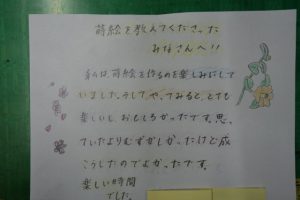 蒔絵を教えてくださった
みなさんへ!!
私は、蒔絵を作るのを楽しみにして
いました。そしてやってみると、とても
楽しいし、おもしろかったです。思っ
ていたよりむずかしかったけど成
こうしたのでよかったです。
楽しい時間
でした。